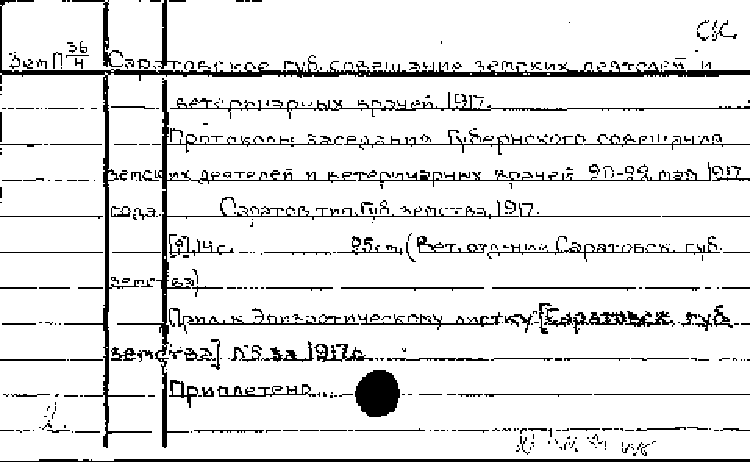 СК
Зем П 36/н Саратовское губ. совещание земских деятелей и
ветеринарных врачей. 1917.
Протоколы заседания Губернского совещания
земских деятелей и ветеринарных врачей 20-22 мая 1917
года. Саратов, тип. Губ. земства, 1917.
14 с. 25 см. (Вет. отдение Саратовск. губ.
земства)
Прил. к Эпизоотическому листку [Саратовск. губ.
земства] №5 за 1917 г.
Приплетено...